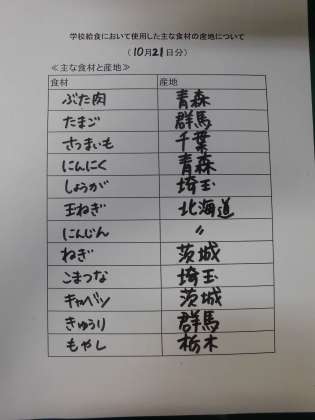 学校給食において使用した主な食材の産地について
(10月21日分)
≪主な食材と産地≫
食材 産地
ぶた肉 青森
たまご 群馬
さつまいも 千葉
にんにく 青森
しょうが 埼玉
玉ねぎ 北海道
にんじん 〃
ねぎ 茨城
こまつな 埼玉
キャベツ 茨城
きゅうり 群馬
もやし 栃木